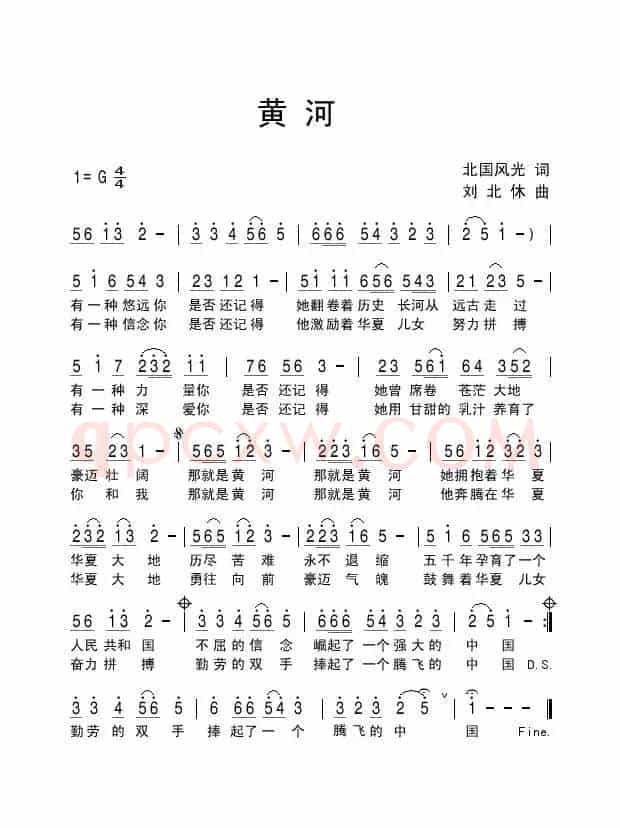 黄河
1=G 4/4
北国风光 词
刘北休 曲
56 13 2 - | 3 3 4 56 5 | 666 54 3 2 3 | 2 5 1 - )
5 1 6 54 3 | 23 12 1 - | 51 11 656 543 | 21 23 5 -
有一种悠远你 是否还记得 她翻卷着历史 长河从 远古走过
有一种信念你 是否还记得 他激励着华夏 儿女 努力拼搏
5 1 7 232 11 | 76 56 3 - | 23 561 64 352
有一种力 量你 是否 还记得 她曾 席卷 苍茫大地
有一种深 爱你 是否 还记得 她用 甘甜的 乳汁 养育了
35 23 1 - | 565 12 3 - | 223 16 5 - | 5 1 6 565 3
豪迈壮阔 那就是黄河 那就是黄河 她拥抱着华夏
你和我 那就是黄河 那就是黄河 他奔腾在华夏
232 13 2 - | 565 12 3 - | 223 16 5 - | 51 6 565 33
华夏大地 历尽苦难 永不退缩 五千年孕育了一个
华夏大地 勇往向前 豪迈气魄 鼓舞着华夏儿女
56 13 2 - | 3 3 4 56 5 | 666 54 3 2 3 | 2 5 1 - :||
人民共和国 不屈的信念 崛起了一个强大的 中国
奋力拼搏 勤劳的双手 捧起了一个腾飞的 中国 D.S.
3 3 4 56 5 | 666 54 3 | 3 3 2 5 | 1 - - - ||
勤劳的双手 捧起了一个 腾飞的中 国 Fine.
qpcxw.com